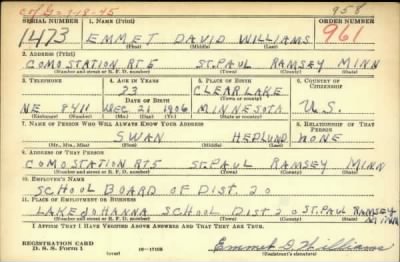 958
SERIAL NUMBER 1. NAME (Print) ORDER NUMBER
1473 EMMET DAVID WILLIAMS 961
(First) (Middle) (Last)
2. ADDRESS (Print)
COMO STATION RT 5 ST. PAUL RAMSEY MINN
(Number and street or R. F. D. number) (Town) (County) (State)
3. TELEPHONE 4. AGE IN YEARS 5. PLACE OF BIRTH 6. COUNTRY OF CITIZENSHIP
33 CLEAR LAKE
DATE OF BIRTH (Town or county)
NE 8411 DEC 21 1906 MINNESOTA U.S.
(Exchange) (Number) (Mo.) (Day) (Yr.) (State or country)
7. NAME OF PERSON WHO WILL ALWAYS KNOW YOUR ADDRESS 8. RELATIONSHIP OF THAT PERSON
SWAN HEDLUND NONE
(Mr., Mrs., Miss) (First) (Middle) (Last)
9. ADDRESS OF THAT PERSON
COMO STATION RT 5 ST. PAUL RAMSEY MINN
(Number and street or R. F. D. number) (Town) (County) (State)
10. EMPLOYER'S NAME
SCHOOL BOARD OF DIST. 20
11. PLACE OF EMPLOYMENT OR BUSINESS
LAKE JOHANNA SCHOOL DIST 20 ST. PAUL RAMSEY MINN
(Number and street or R. F. D. number) (Town) (County) (State)
I AFFIRM THAT I HAVE VERIFIED ABOVE ANSWERS AND THAT THEY ARE TRUE.
REGISTRATION CARD
D. S. S. FORM 1 (over) 16—17105 Emmet D. Williams
(Registrant's signature)